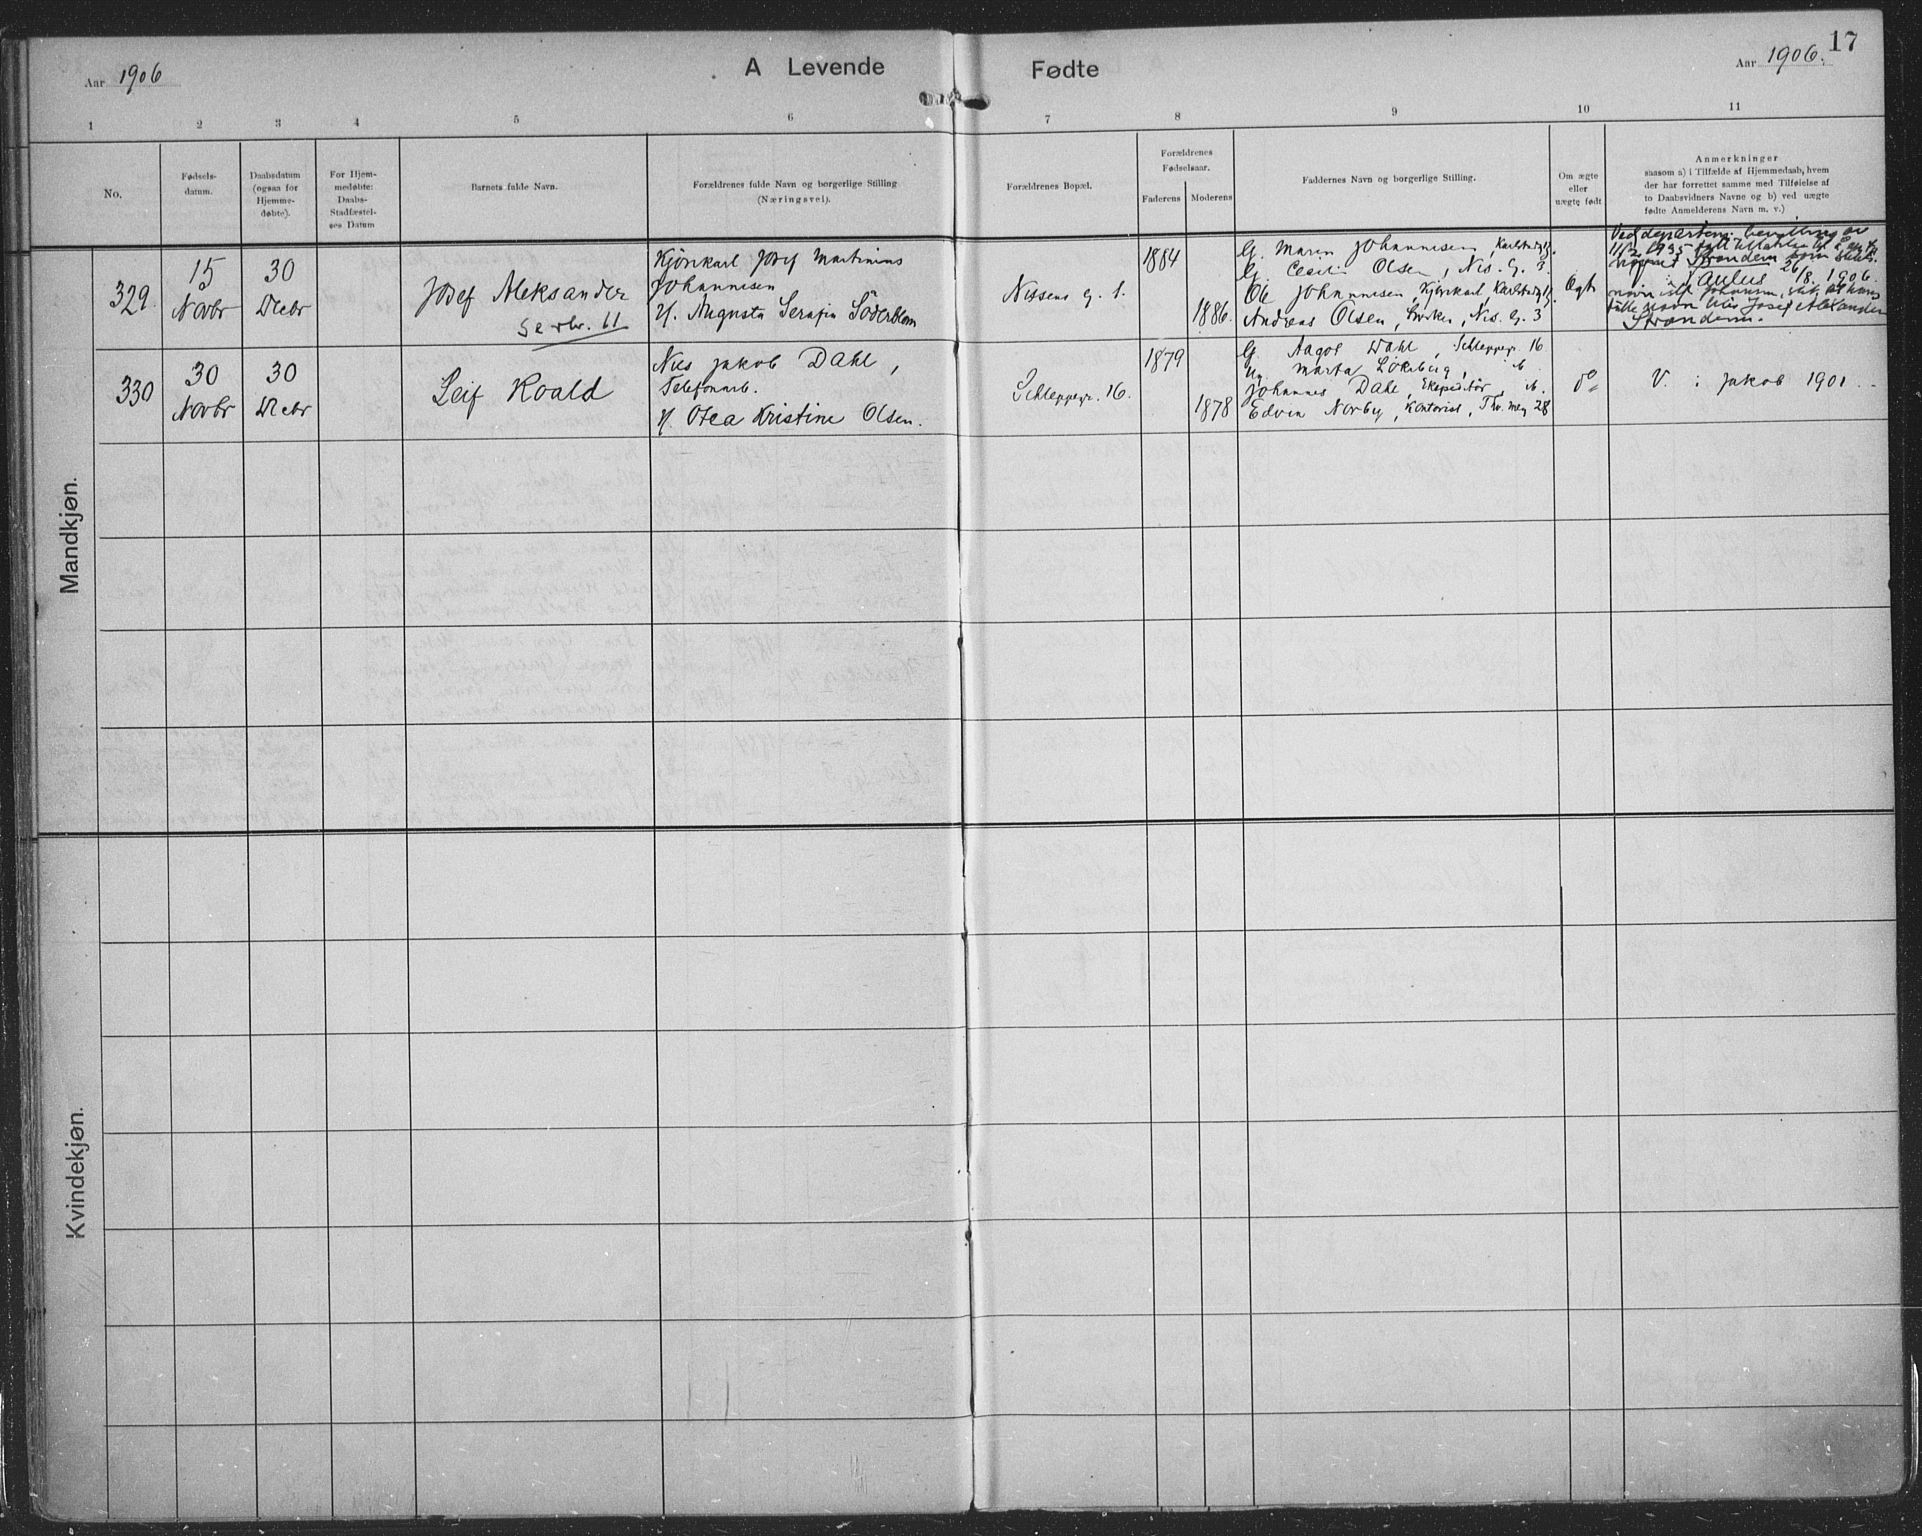 17
Aar 1906
A Levende
Fødte
Aar 1906.
1 2 3 4 5 6 7 8 9 10 11
No.
Fødsels-
datum.
Daabsdatum
(ogsaa for
Hjemme-
døbte).
For Hjem-
medøbte:
Daabs-
Stadfæstel-
ses Datum
Barnets fulde Navn.
Forældrenes fulde Navn og borgerlige Stilling
(Næringsvei).
Forældrenes Bopæl.
Forældrenes
Fødselsaar.
Faderens
Moderens
Faddernes Navn og borgerlige Stilling.
Om ægte
eller
uægte født
Anmerkninger
saasom a) i Tilfælde af Hjemmedaab, hvem
der har forrettet samme med Tilføielse af
to Daabsvidners Navne og b) ved uægte
fødte Anmelderens Navn m. v.)
Mandkjøn.
329.
15
Novbr
30
Decbr
Josef Aleksander
Kjørekarl Josef Martinius
Johannesen
H. Augusta Serafia Söderblom
Nissens g. 1.
1884
1886.
G. Maren Johannesen, Karlstadg
G. Olsen, Nis. G. 3
Ole Johannesen, Kjørekarl, Karlstadg
Andreas Olsen, Nis. G. 3
Ægte
11/2 1935
Strandem som
26/8 1906.
navn Josef Alexander
Strandem.
330
30
Novbr
30
Decbr
Leif Roald
Nils Jakob Dahl,
Telefonarb.
H. Otea Kristine Olsen.
Schleppegr. 16.
1879
1878
G. Aagot Dahl, Schleppegr 16
Marta Løkeberg, ib.
Johannes Dahl, Ekspeditør, ib.
Edvin Norby, Kontorist, Th. Mey 28
do
V. i Jakob 1901.
Kvindekjøn.